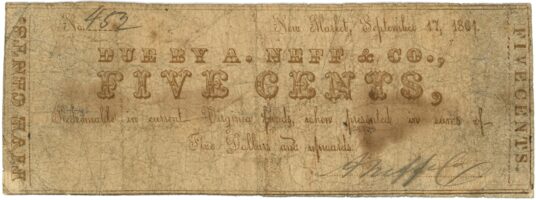 FIVE CENTS.
No. 452 New Market, September 17, 1861.
DUE BY A. NEFF & CO.,
FIVE CENTS,
Redeemable in current Virginia funds, when presented in sums of
Five Dollars and upwards.
A Neff & Co
FIVE CENTS.